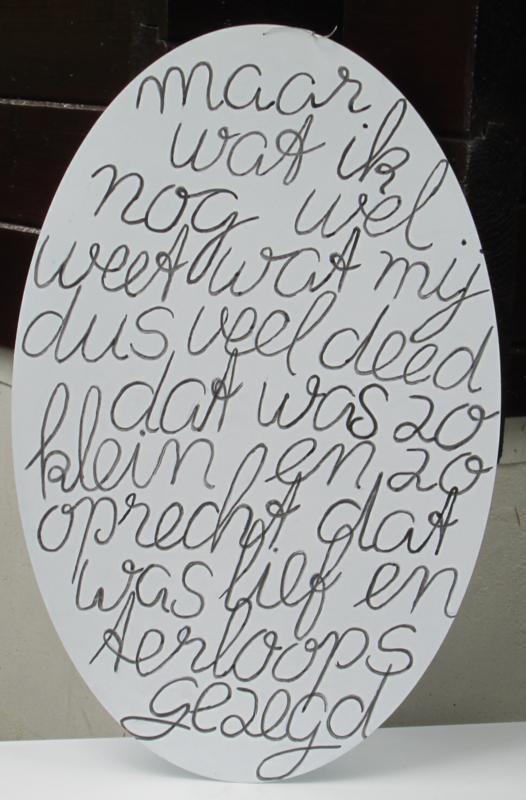 maar
wat ik
nog wel
weet wat mij
dus veel deed
dat was zo
klein en zo
oprecht dat
was lief en
terloops
gezegd